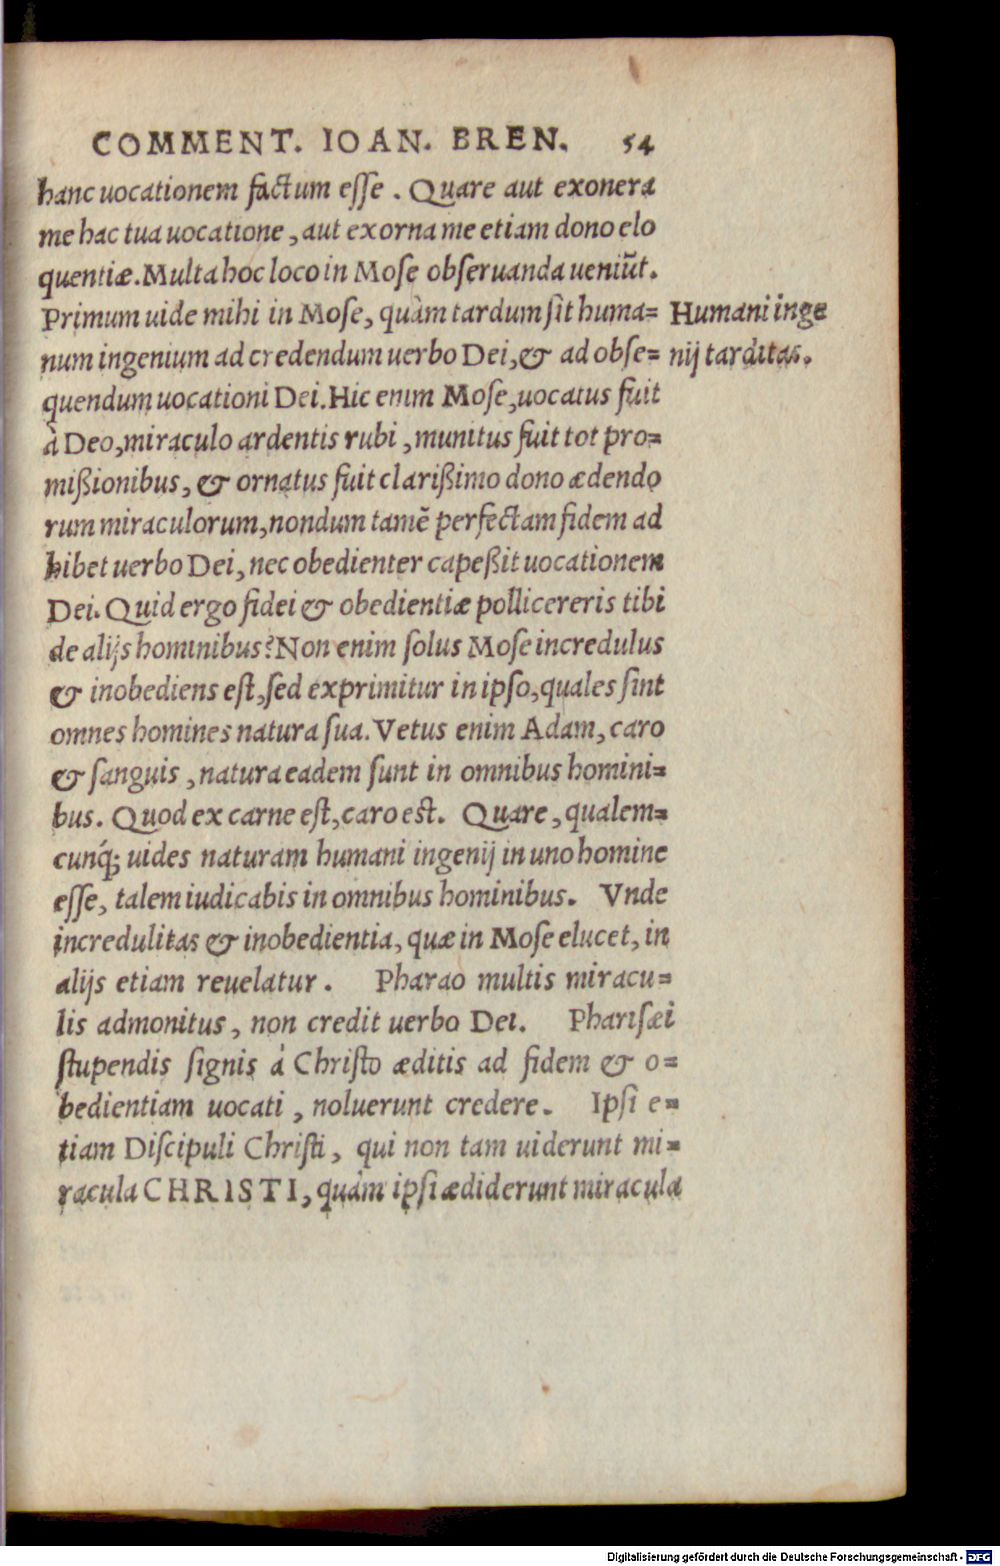 COMMENT. IOAN. BREN. 54
hanc uocationem factum eſſe. Quare aut exonera
me hac tua uocatione, aut exorna me etiam dono elo
quentiæ. Multa hoc loco in Moſe obſeruanda ueniũt.
Primum uide mihi in Moſe, quàm tardum ſit huma=
Humani inge
num ingenium ad credendum uerbo Dei, & ad obſe=
nij tarditas.
quendum uocationi Dei. Hic enim Moſe, uocatus fuit
à Deo, miraculo ardentis rubi, munitus fuit tot pro=
mißionibus, & ornatus fuit clarißimo dono ædendo
rum miraculorum, nondum tamẽ perfectam fidem ad
hibet uerbo Dei, nec obedienter capeßit uocationem
Dei. Quid ergo fidei & obedientiæ pollicereris tibi
de alijs hominibus? Non enim ſolus Moſe incredulus
& inobediens eſt, ſed exprimitur in ipſo, quales ſint
omnes homines natura ſua. Vetus enim Adam, caro
& ſanguis, natura eadem ſunt in omnibus homini=
bus. Quod ex carne eſt, caro eſt. Quare, qualem=
cunq́; uides naturam humani ingenij in uno homine
eſſe, talem iudicabis in omnibus hominibus. Vnde
incredulitas & inobedientia, quæ in Moſe elucet, in
alijs etiam reuelatur. Pharao multis miracu=
lis admonitus, non credit uerbo Dei. Phariſæi
ſtupendis ſignis à Chriſto æditis ad fidem & o=
bedientiam uocati, noluerunt credere. Ipſi e=
tiam Diſcipuli Chriſti, qui non tam uiderunt mi=
racula CHRISTI, quàm ipſi ædiderunt miracula
Digitalisierung gefördert durch die Deutsche Forschungsgemeinschaft - DFG